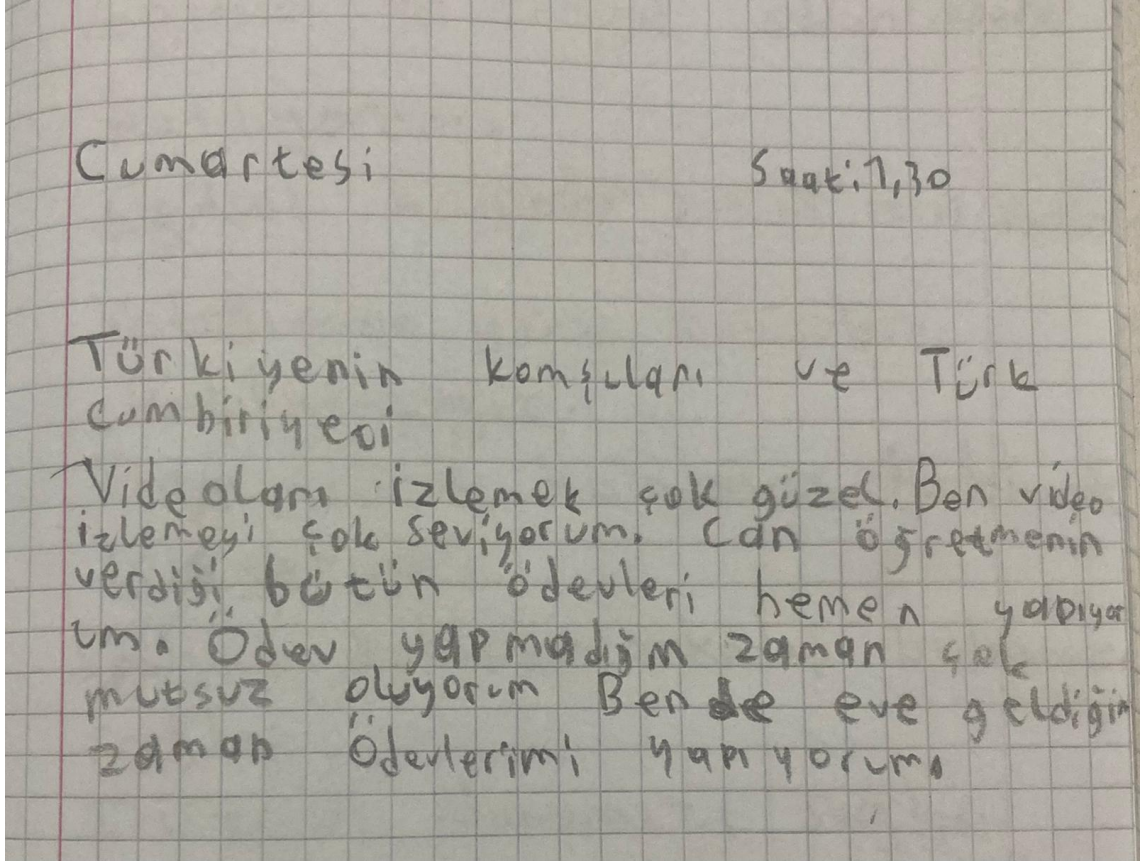 Cumartesi Saat: 1,30
Türkiyenin komşuları ve Türk
cumhiriyeti
Videoları izlemek çok güzel. Ben video
izlemeyi çok seviyorum. Can öğretmenin
verdiği bütün ödevleri hemen yapıyor
um. Ödev yapmadığım zaman çok
mutsuz oluyorum Ben de eve geldiğim
zaman ödevlerimi yapıyorum.